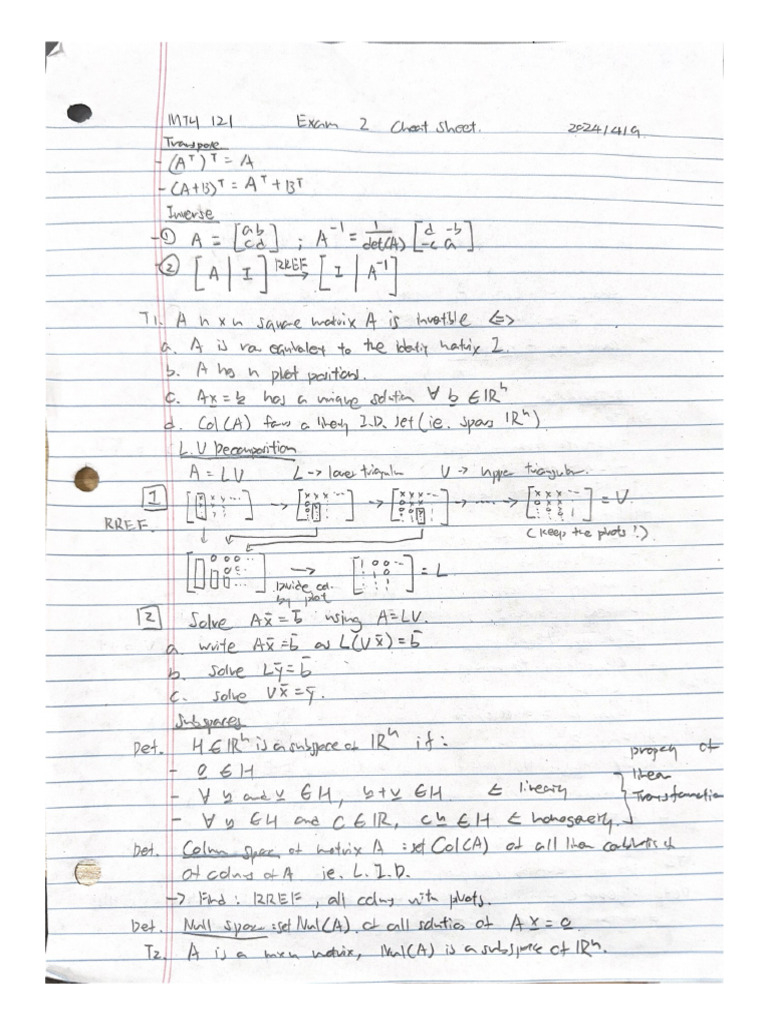 MTH 121 Exam 2 Cheat Sheet. 2024/4/9
Transpose
- (Aᵀ)ᵀ = A
- (A+B)ᵀ = Aᵀ + Bᵀ
Inverse
- ① A = [a b; c d] ; A⁻¹ = 1/det(A) [d -b; -c a]
- ② [A | I] RREF→ [I | A⁻¹]
T1. A n x n square matrix A is invertible <=>
a. A is row equivalent to the identity matrix I.
b. A has n pivot positions.
c. Ax = b has a unique solution ∀ b ∈ ℝⁿ
d. Col(A) forms a linearly I.D. set (ie. spans ℝⁿ)
L.U Decomposition
A = LU L -> lower triangular U -> upper triangular.
1 → → → ..... → = U.
RREF. (keep the pivots!)
→ = L
Divide col.
by pivot
2 Solve Ax̄ = b̄ using A = LU.
a. write Ax̄ = b̄ as L(Ux̄) = b̄
b. solve Lȳ = b̄
c. solve Ux̄ = ȳ.
Subspaces
Def. H ∈ ℝⁿ is a subspace of ℝⁿ if :
- 0 ∈ H
- ∀ u and v ∈ H, u+v ∈ H. ∈ linearity
- ∀ u ∈ H and c ∈ ℝ, cu ∈ H ∈ homogeneity.
property of
linear
Transformation
Def. Column space of matrix A : set Col(A) of all linear combinations of
of columns of A ie. L.I.D.
-> Find : RREF, all columns with pivots.
Def. Null space : set Nul(A) of all solutions of Ax = 0.
T2. A is a mxn matrix, Nul(A) is a subspace of ℝⁿ.